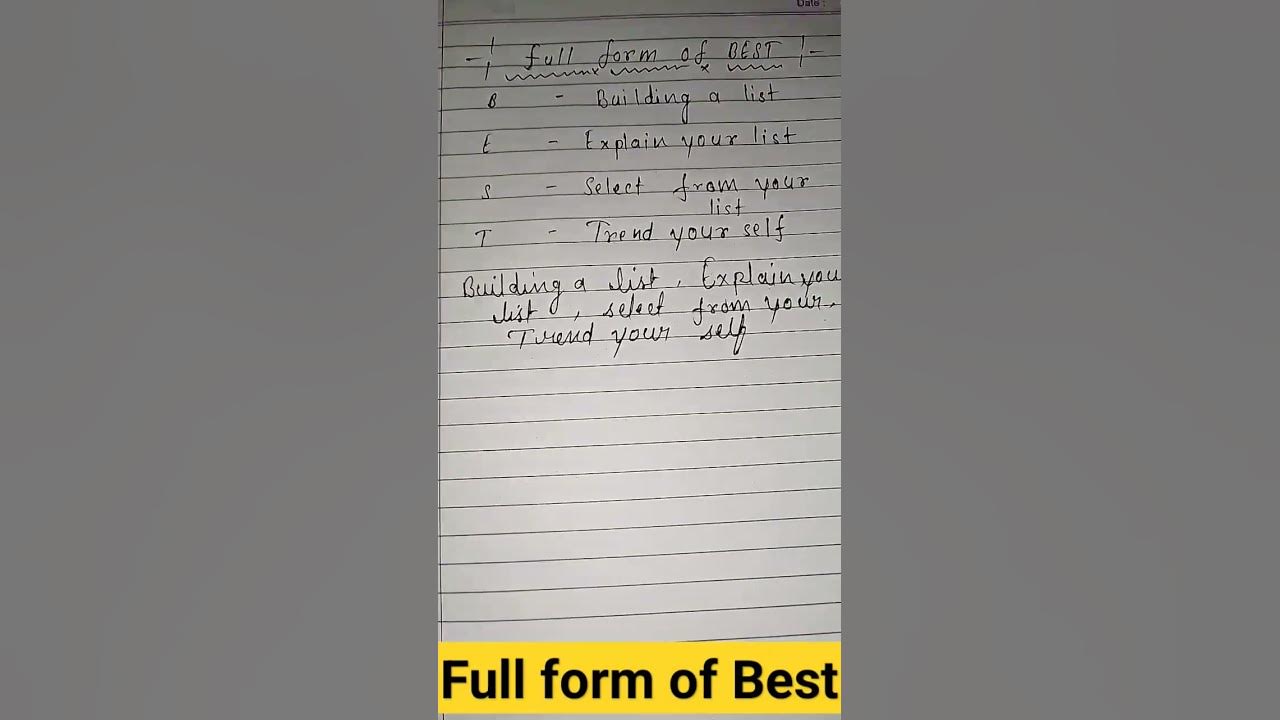 Date :
-¦ full form of BEST ¦-
B - Building a list
E - Explain your list
S - Select from your
list
T - Trend your self
Building a list, Explain you
list, select from your.
Trend your self
Full form of Best